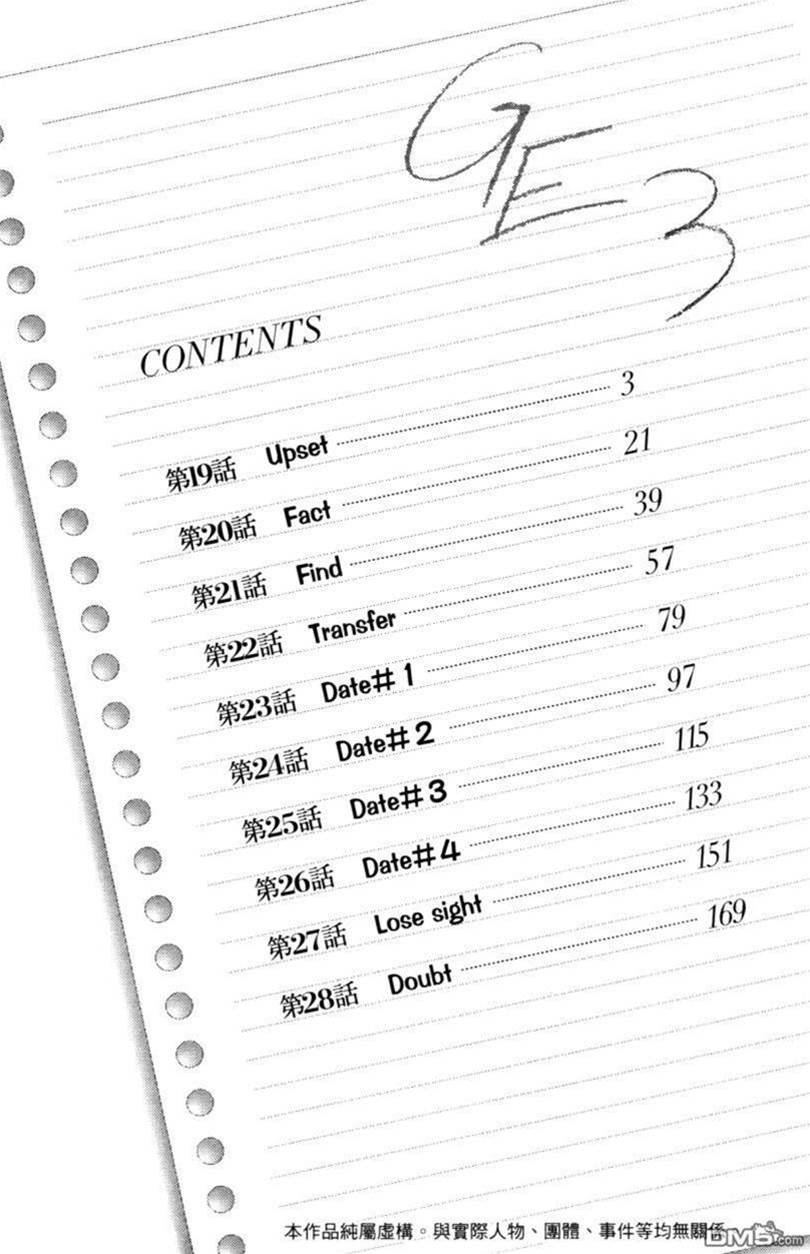 GE 3
CONTENTS
第19話 Upset 3
第20話 Fact 21
第21話 Find 39
第22話 Transfer 57
第23話 Date#1 79
第24話 Date#2 97
第25話 Date#3 115
第26話 Date#4 133
第27話 Lose sight 151
第28話 Doubt 169
本作品純屬虛構。與實際人物、團體、事件等均無關係
DM5.com